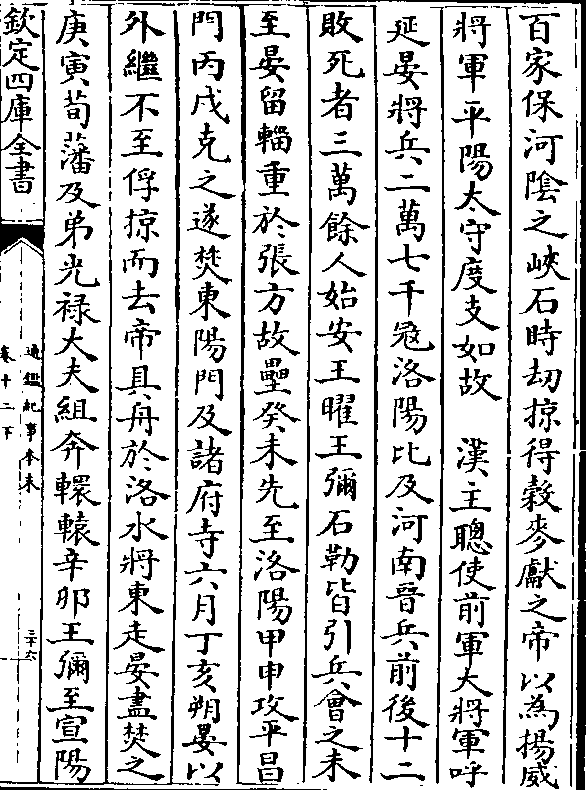 百家保河陰之峽石時劫掠得穀麥獻之帝以為揚威
將軍平陽太守度支如故　漢主聰使前軍大將軍呼
延晏將兵二萬七千冦洛陽比及河南晉兵前後十二
敗死者三萬餘人始安王曜王彌石勒皆引兵會之未
至晏留輜重於張方故壘癸未先至洛陽甲申攻平昌
門丙戌克之遂焚東陽門及諸府寺六月丁亥朔晏以
外繼不至俘掠而去帝具舟於洛水將東走晏盡焚之
庚寅荀藩及弟光祿大夫組奔轘轅辛卯王彌至宣陽
欽定四庫全書
通鑑紀事本末
卷十二下
三十六